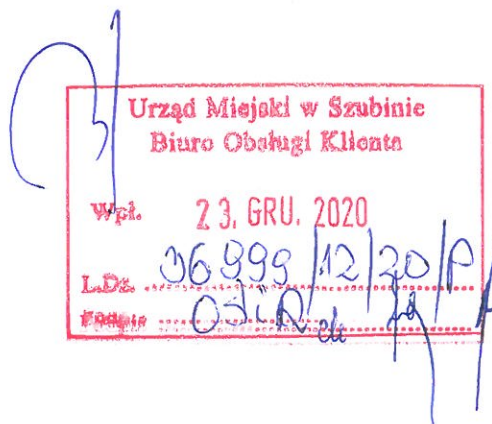 Urząd Miejski w Szubinie
Biuro Obsługi Klienta
Wpł. 23. GRU. 2020
L.Dz. 36999/12/20/P